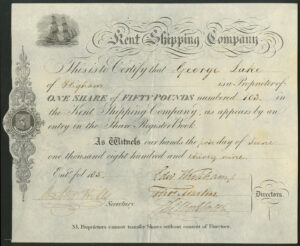 Kent Shipping Company
This is to Certify that George Lake
of Higham is a Proprietor of
ONE SHARE of FIFTY POUNDS numbered 103, in
the Kent Shipping Company, as appears by an
entry in the Share Register Book.
As Witness our hands the day of June
one thousand eight hundred and thirty nine.
Entd. fol 103.
Secretary.
Directors.
NB. Proprietors cannot transfer Shares without consent of Directors.